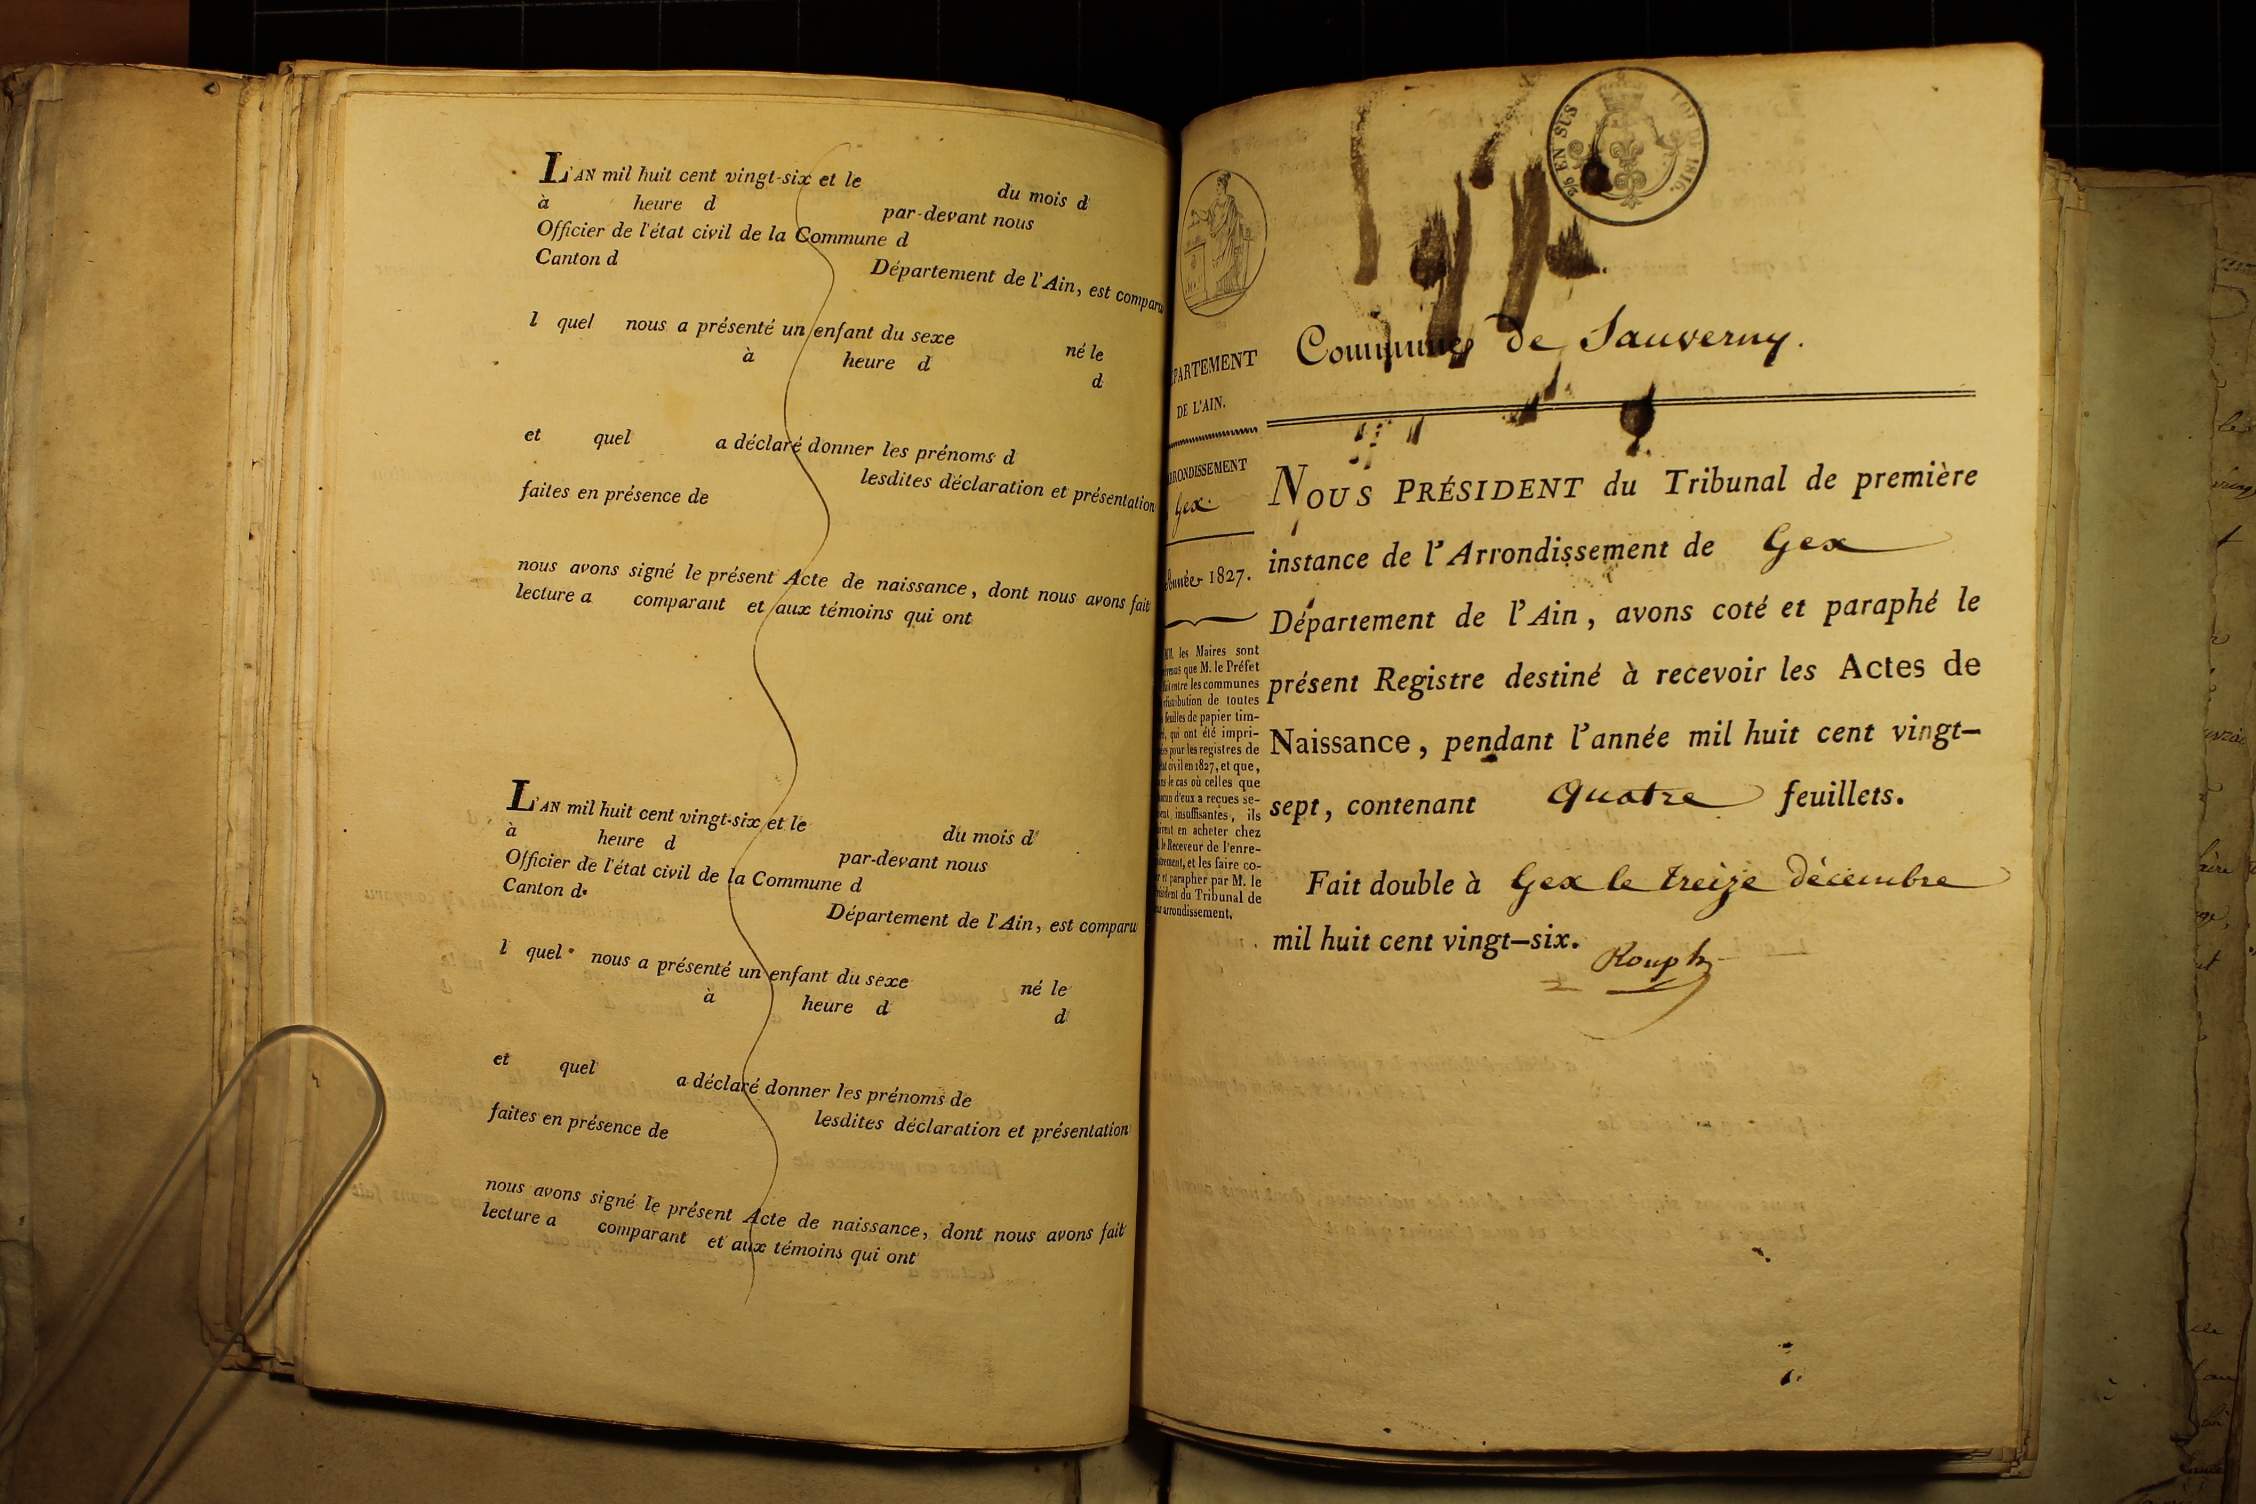 L'AN mil huit cent vingt-six et le du mois d
à heure d par-devant nous
Officier de l'état civil de la Commune d
Canton d Département de l'Ain, est comparu
l quel nous a présenté un enfant du sexe né le
à heure d d
et quel a déclaré donner les prénoms d
lesdites déclaration et présentation
faites en présence de
nous avons signé le présent Acte de naissance, dont nous avons fait
lecture a comparant et aux témoins qui ont
L'AN mil huit cent vingt-six et le du mois d
à heure d par-devant nous
Officier de l'état civil de la Commune d
Canton d Département de l'Ain, est comparu
l quel nous a présenté un enfant du sexe né le
à heure d d
et quel a déclaré donner les prénoms de
lesdites déclaration et présentation
faites en présence de
nous avons signé le présent Acte de naissance, dont nous avons fait
lecture a comparant et aux témoins qui ont
EN SUS
LOI DE 1816.
PARTEMENT
DE L'AIN.
RRONDISSEMENT
Gex.
Année 1827.
les Maires sont
que M. le Préfet
entre les communes
distribution de toutes
feuilles de papier tim-
qui ont été impri-
pour les registres de
civil en 1827, et que,
le cas où celles que
d'eux a reçues se-
insuffisantes, ils
en acheter chez
le Receveur de l'enre-
et les faire co-
et parapher par M. le
du Tribunal de
arrondissement.
Commune de Sauverny.
NOUS PRÉSIDENT du Tribunal de première
instance de l'Arrondissement de Gex
Département de l'Ain, avons coté et paraphé le
présent Registre destiné à recevoir les Actes de
Naissance, pendant l'année mil huit cent vingt-
sept, contenant quatre feuillets.
Fait double à Gex le treize décembre
mil huit cent vingt-six.
Rouph